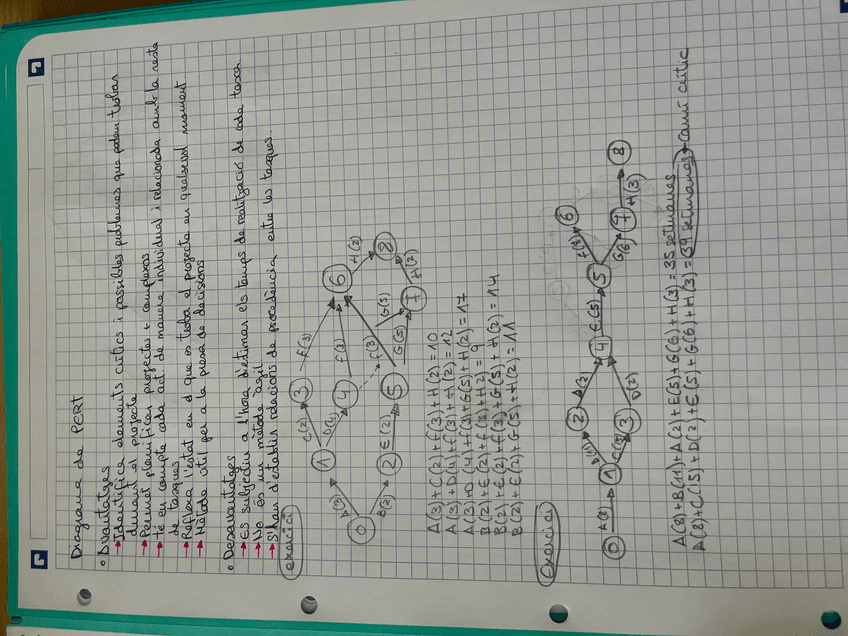 Diagrama de PERT
• Avantatges
→ Identifica elements crítics i possibles problemes que poden trobar
durant el projecte
→ Permet planificar projectes + complexos
→ Té en compte cada act. de manera individual i relacionada amb la resta
de tasques
→ Reflexa l'estat en el que es troba el projecte en qualsevol moment
→ Mètode útil per a la presa de decisions
• Desavantatges
→ Es subjectiu a l'hora d'estimar els temps de realització de cada tasca.
→ No és un mètode àgil
→ S'han d'establir relacions de procedència entre les tasques.
exercici
0 A(3) 1 C(2) 3 F(3) 6 H(2) 8
D(4) 4 F(3)
F(3) G(5)
B(2) 2 E(2) 5 G(5) 7 H(2)
A(3)+C(2)+F(3)+H(2)=10
A(3)+D(4)+F(3)+H(2)=12
A(3)+D(4)+F(3)+G(5)+H(2)=17
B(2)+E(2)+F(3)+H2)=9
B(2)+E(2)+F(3)+G(5)+H(2)=14
B(2)+E(2)+G(5)+H(2)=11
Exercici
0 A(8) 1 2 D(2) 4 E(5) 5 6
C(15) 3 D(2) G(6) 7 H(3) 8
A(8)+B(11)+A(2)+E(5)+G(6)+H(3)=35 setmanes
A(8)+C(15)+D(2)+E(5)+G(6)+H(3)=39 setmanes→camí crític